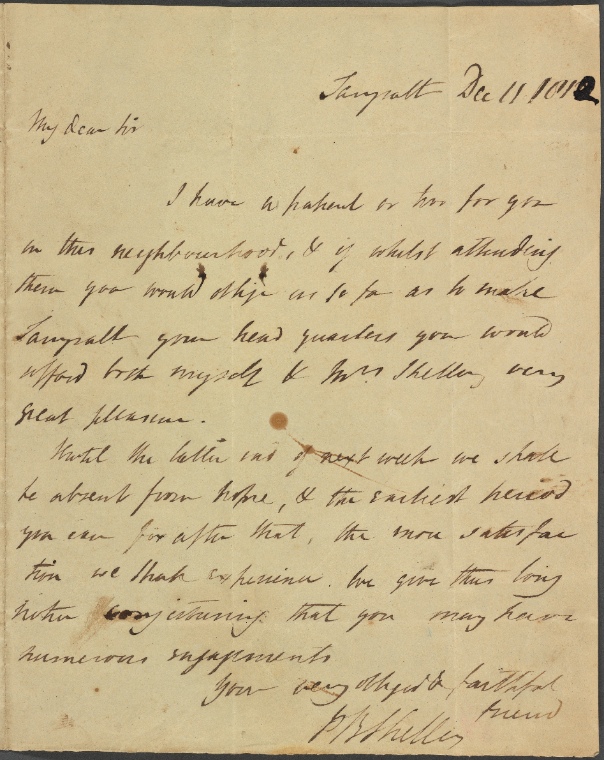 Tanyralt Dec 11 1812
My dear Sir
I have a patient or two for you
in this neighbourhood, & if whilst attending
them you would oblige us so far as to make
Tanyralt your head quarters you would
afford both myself & Mrs. Shelley very
great pleasure.
Until the latter end of next week we shall
be absent from home, & the earliest period
you can fix after that, the more satisfac
tion we shall experience. We give this long
notice conjecturing that you may have
numerous engagements
Your very obliged & faithful
friend
P B Shelley